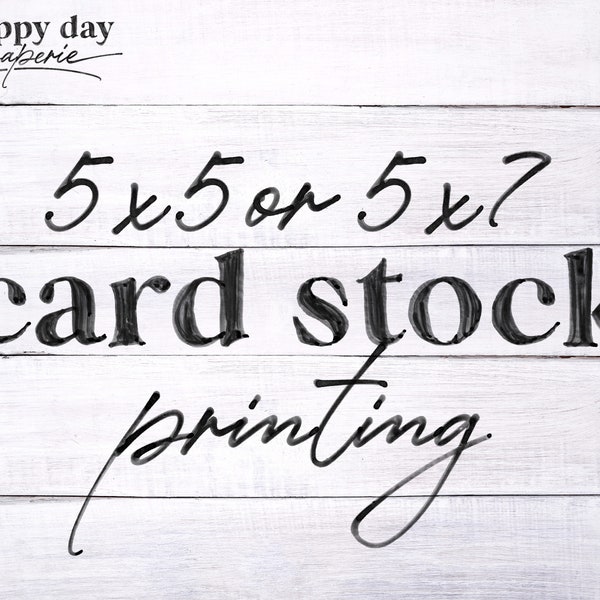 ppy day
aperie
5x5 or 5x7
card stock
printing